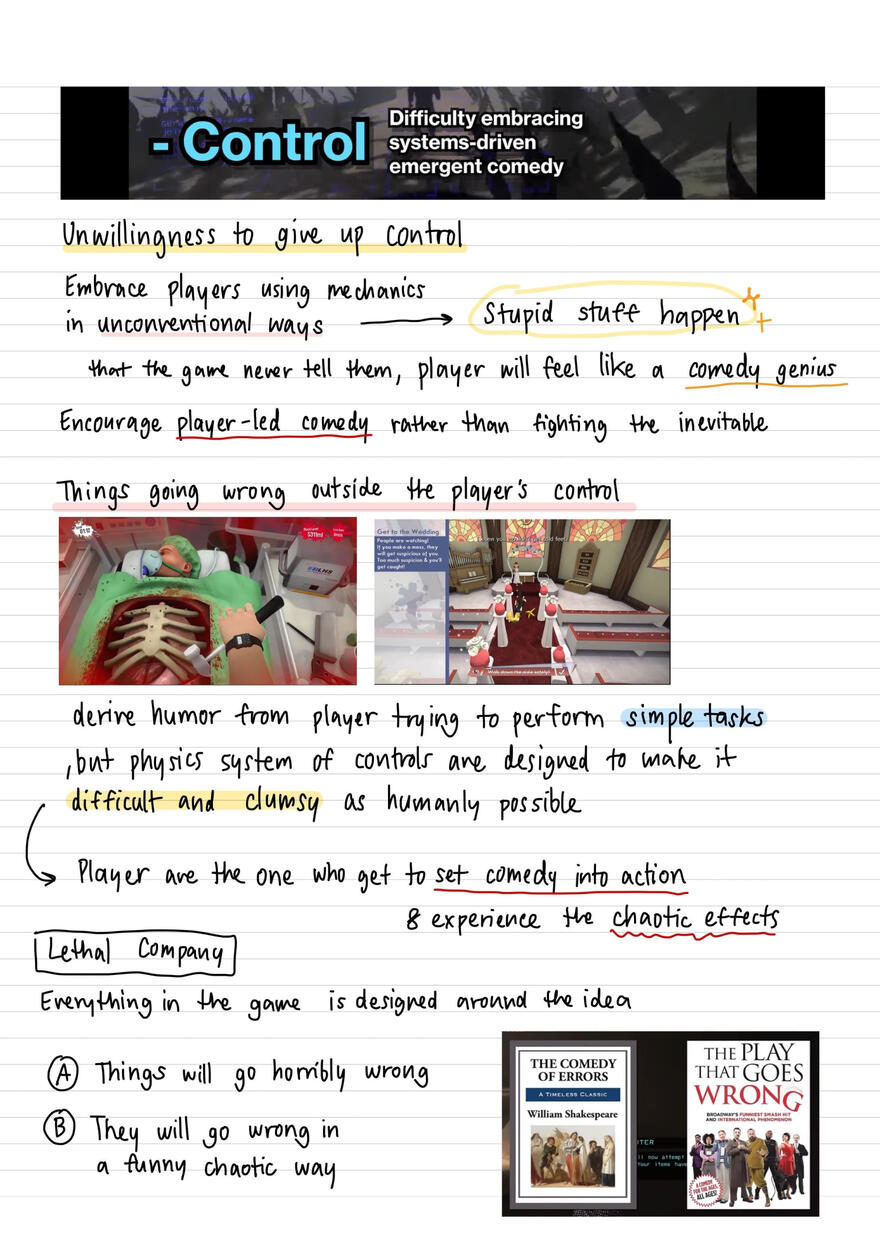 - Control
Difficulty embracing
systems-driven
emergent comedy
Unwillingness to give up control
Embrace players using mechanics
in unconventional ways → Stupid stuff happen
that the game never tell them, player will feel like a comedy genius
Encourage player-led comedy rather than fighting the inevitable
Things going wrong outside the player's control
Get to the Wedding
People are watching!
If you make a mess, they
will get suspicious of you.
Too much suspicion & you'll
get caught!
derive humor from player trying to perform simple tasks
,but physics system of controls are designed to make it
difficult and clumsy as humanly possible
Player are the one who get to set comedy into action
& experience the chaotic effects
Lethal Company
Everything in the game is designed around the idea
A Things will go horribly wrong
B They will go wrong in
a funny chaotic way
THE COMEDY
OF ERRORS
A TIMELESS CLASSIC
William Shakespeare
THE PLAY
THAT GOES
WRONG
BROADWAY'S FUNNIEST SMASH HIT
AND INTERNATIONAL PHENOMENON
A COMEDY
FOR THE AGES.
ALL AGES!